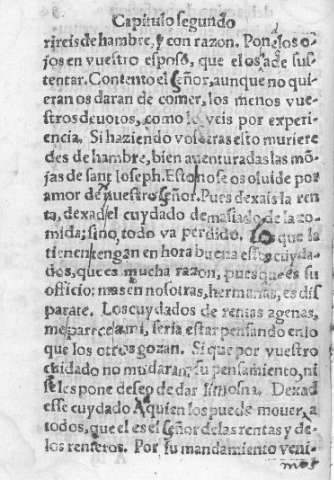 Capitulo segundo
rireis de hambre, y con razon. Poned los o
jos en vuestro esposo, que el os ha de sus
tentar. Contento el señor, aunque no qui
eran os daran de comer, los menos vue
stros deuotos, como lo veis por experi
encia. Si haziendo vosotras esto muriere
des de hambre, bien auenturadas las mõ
jas de sant Ioseph. Esto no se os oluide por
amor de nuestro señor. Pues dexais la ren
ta, dexad el cuydado demasiado de la co-
mida; sino, todo va perdido. Lo que la
tienen tengan en hora buena essos cuyda-
dos, que es mucha razon, pues que es su
officio: mas en nosotras, hermanas, es dis
parate. Los cuydados de rentas agenas,
me parece a mi, seria estar pensando en lo
que los otros gozan. Si que por vuestro
cuidado no mudaran su pensamiento, ni
se les pone deseo de dar limosna. Dexad
esse cuydado A quien los puede mouer, a
todos, que el es el señor de las rentas y de-
los renteros. Por su mandamiento veni-
mos